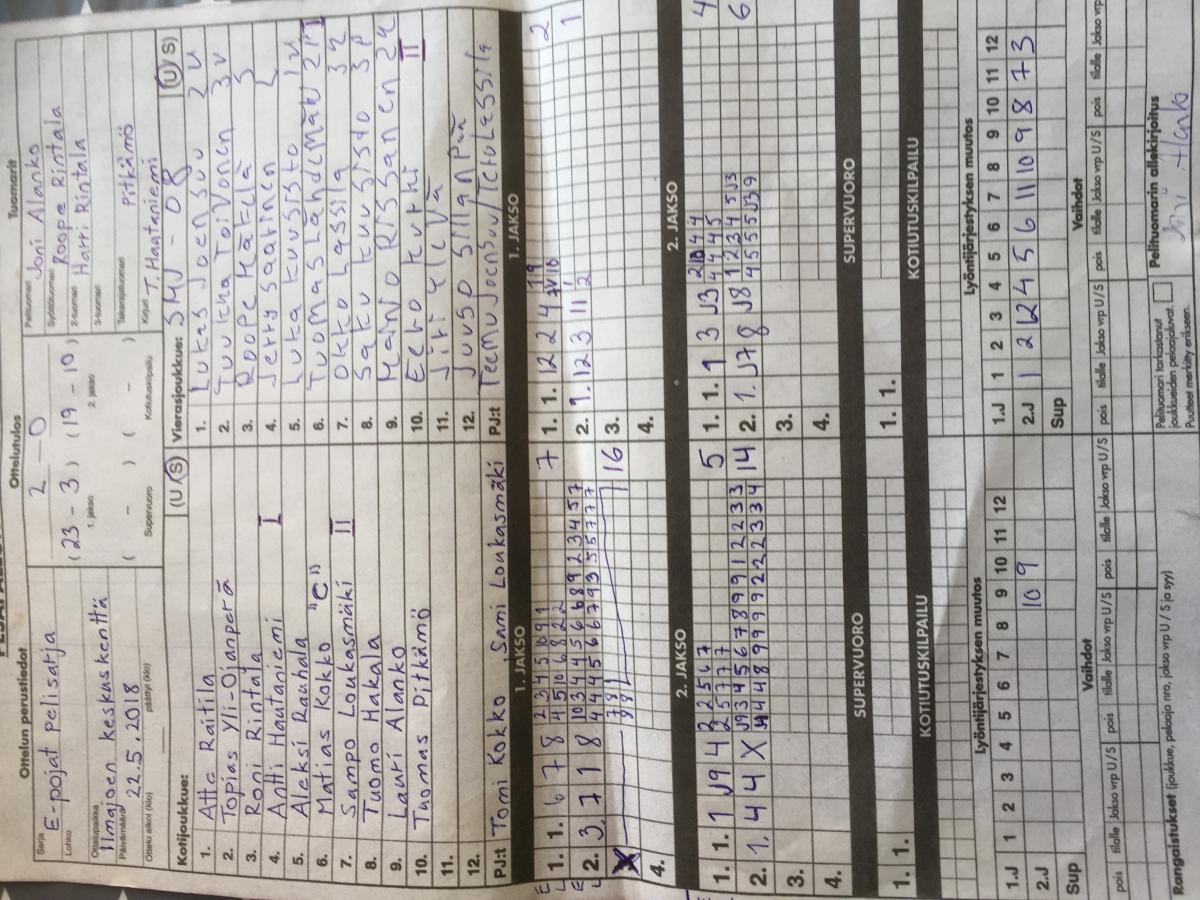 Ottelun perustiedot
Sarja
E-pojat pelisarja
Lohko
Ottelupaikka
Ilmajoen keskuskenttä
Päivämäärä
22.5.2018
Ottelu alkoi (klo)
päättyi (klo)
Ottelutulos
2 - 0
(23 - 3) (19 - 10)
1. jakso
2. jakso
( - ) ( - )
Supervuoro
Kotiutuskilpailu
Tuomarit
Pelituomari Joni Alanko
Syöttötuomari Roope Rintala
2-tuomari Harri Rintala
3-tuomari
Takarajatuomari Pitkämö
Kirjuri T. Haataniemi
Kotijoukkue:
(U/S)
1. Atte Raitila
2. Topias Yli-Ojanperä
3. Roni Rintala
4. Antti Hautaniemi I
5. Aleksi Rauhala
6. Matias Kokko "C"
7. Sampo Loukasmäki II
8. Tuomo Hakala
9. Lauri Alanko
10. Tuomas Pitkämö
11.
12.
PJ:t Tomi Kokko, Sami Loukasmäki
Vierasjoukkue: SMJ-08
(U/S)
1. Lukas Joensuu 2v
2. Tuukka Toivonen 3v
3. Roope Mätelä 3
4. Jerry Saarinen L
5. Luka Kuusisto 1v
6. Tuomas Lähdemäki 2P I
7. Okko Lassila 3k
8. Saku Kuusisto 3P
9. Maino Rissanen 2k
10. Eero Kurki II
11. Jiri Ylevä
12. Juuso Sillanpää
PJ:t Teemu Joensuu/Tetu Lessila
1. JAKSO
1. JAKSO
1. 1. 6 7 8
2 3 4 5 10 9 1
4 5 10 6 8 2 2
7
2. 3. 7 1 8
10 3 4 4 5 6 6 8 9 2 3 4 5 7
4 4 4 5 6 6 7 9 3 5 5 7 7 7
7 8
9 8 1
16
4.
1. 1. 12 2 4
2
2. 1. 12 3 11
1
3.
4.
2. JAKSO
2. JAKSO
1. 1. 1 J9 4
2 2 5 6 7
2 5 7 7 7
5
2. 1. 4 4 X
J9 3 4 5 6 7 8 9 9 1 2 2 3 3
J9 4 4 8 9 9 9 9 2 2 2 3 3 4
14
3.
4.
1. 1. 1 3 J3
2 10 4 4
3 4 4 5
4
2. 1. J7 8 J8
1 2 3 4 5 J3
4 5 5 5 J3 9
6
3.
4.
SUPERVUORO
SUPERVUORO
1. 1.
1. 1.
KOTIUTUSKILPAILU
KOTIUTUSKILPAILU
Lyöntijärjestyksen muutos
1.J 1 2 3 4 5 6 7 8 9 10 11 12
2.J 10 9
Sup
Lyöntijärjestyksen muutos
1.J 1 2 3 4 5 6 7 8 9 10 11 12
2.J 1 2 12 4 5 6 11 10 9 8 7 3
Sup
Vaihdot
pois tilalle Jakso vrp U/S pois tilalle Jakso vrp U/S pois tilalle Jakso vrp U/S
Vaihdot
pois tilalle Jakso vrp U/S pois tilalle Jakso vrp U/S pois tilalle Jakso vrp
Rangaistukset (joukkue, pelaaja nro, jakso vrp U / S ja syy)
Pelituomari tarkastanut
joukkueiden pelaajaluvat.
Puutteet merkitty erikseen.
Pelituomarin allekirjoitus
Joni Alanko